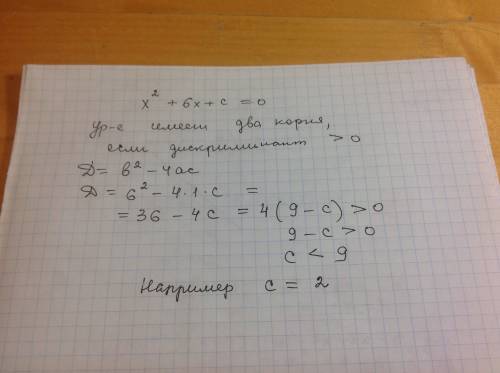 x² + 6x + c = 0
Ур-е имеет два корня,
если дискриминант > 0
Д = b² - 4ac
Д = 6² - 4·1·c =
= 36 - 4c = 4(9 - c) > 0
9 - c > 0
c < 9
Например c = 2